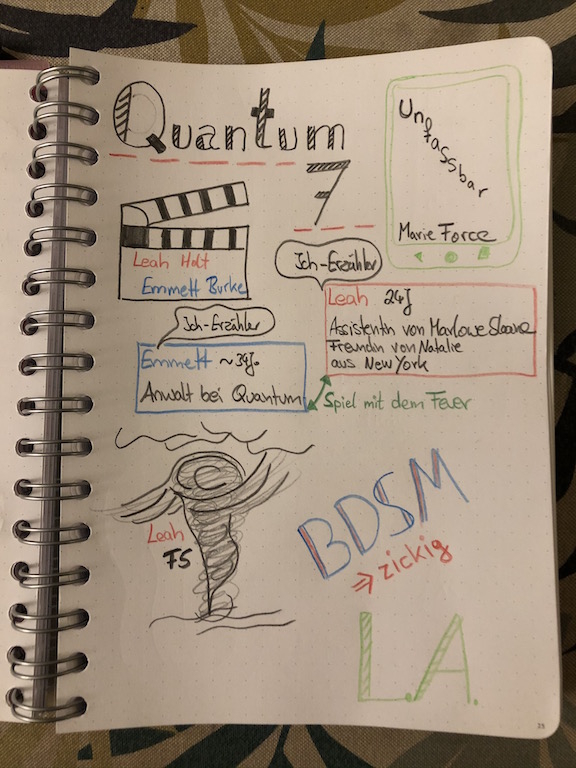 Quantum
7
Unfassbar
Marie Force
Leah Holt
Emmett Burke
Ich-Erzähler
Leah 24J
Assistentin von Marlowe Sloane
Freundin von Natalie
aus New York
Ich-Erzähler
Emmett ~34J.
Anwalt bei Quantum
Spiel mit dem Feuer
Leah
F5
BDSM
⇒ zickig
L.A.